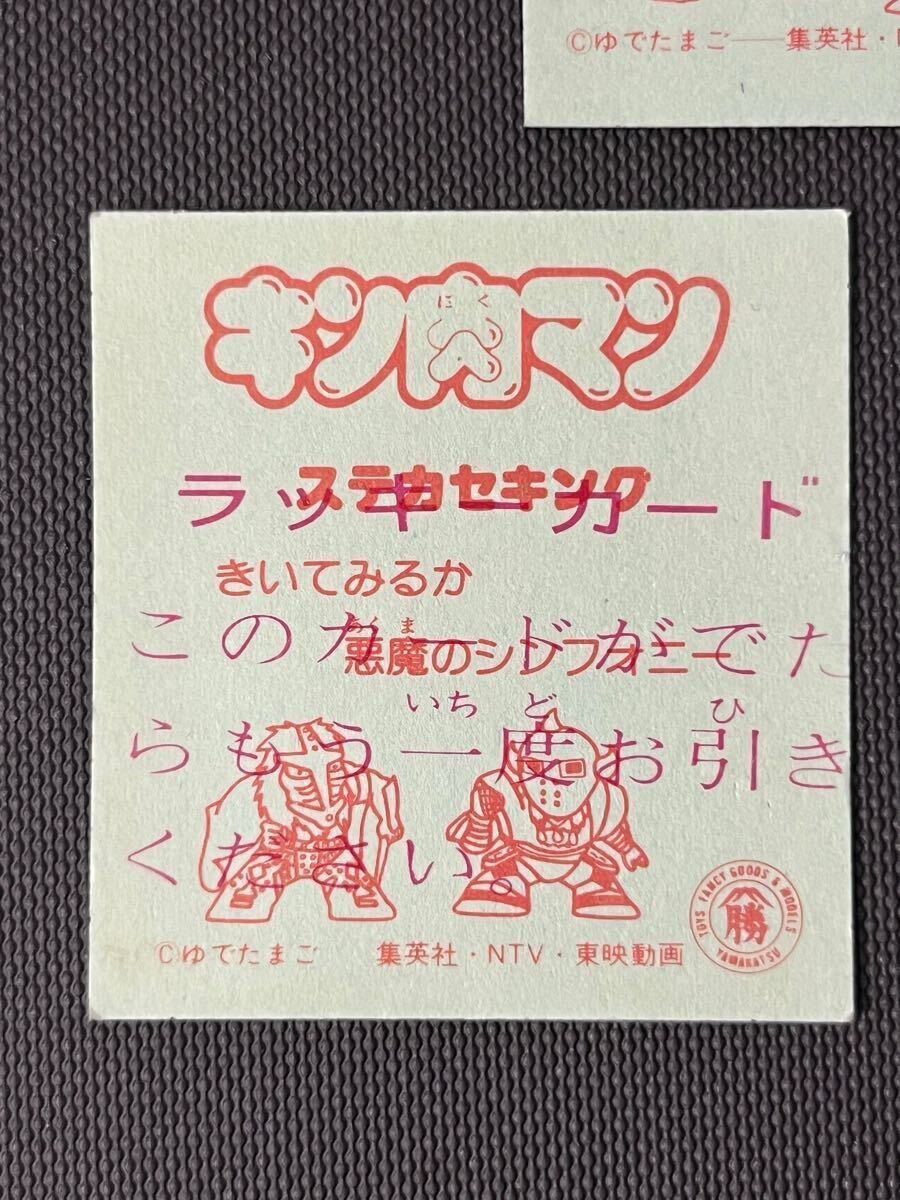 ©ゆでたまご──集英社・
キン肉マン
にく
ステカセキング
ラッキーカード
きいてみるか
このカードがでた
あくま
悪魔のシンフォニー
いちど ひ
らもう一度お引き
ください。
©ゆでたまご 集英社・NTV・東映動画
TOYS FANCY GOODS & MODELS
勝
YAMAKATSU